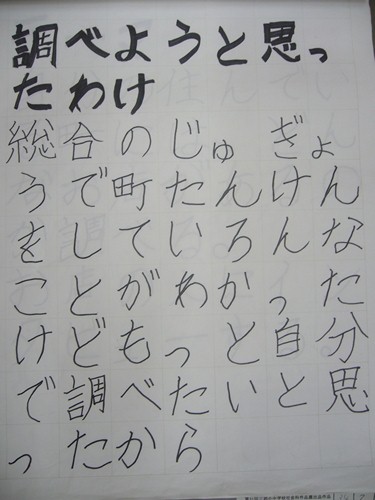 調べようと思っ
たわけ
総合のじゅぎょ
うで町たんけん
をしていろんな
ことがわかった
けどもっと自分
で調べたいと思
ったから